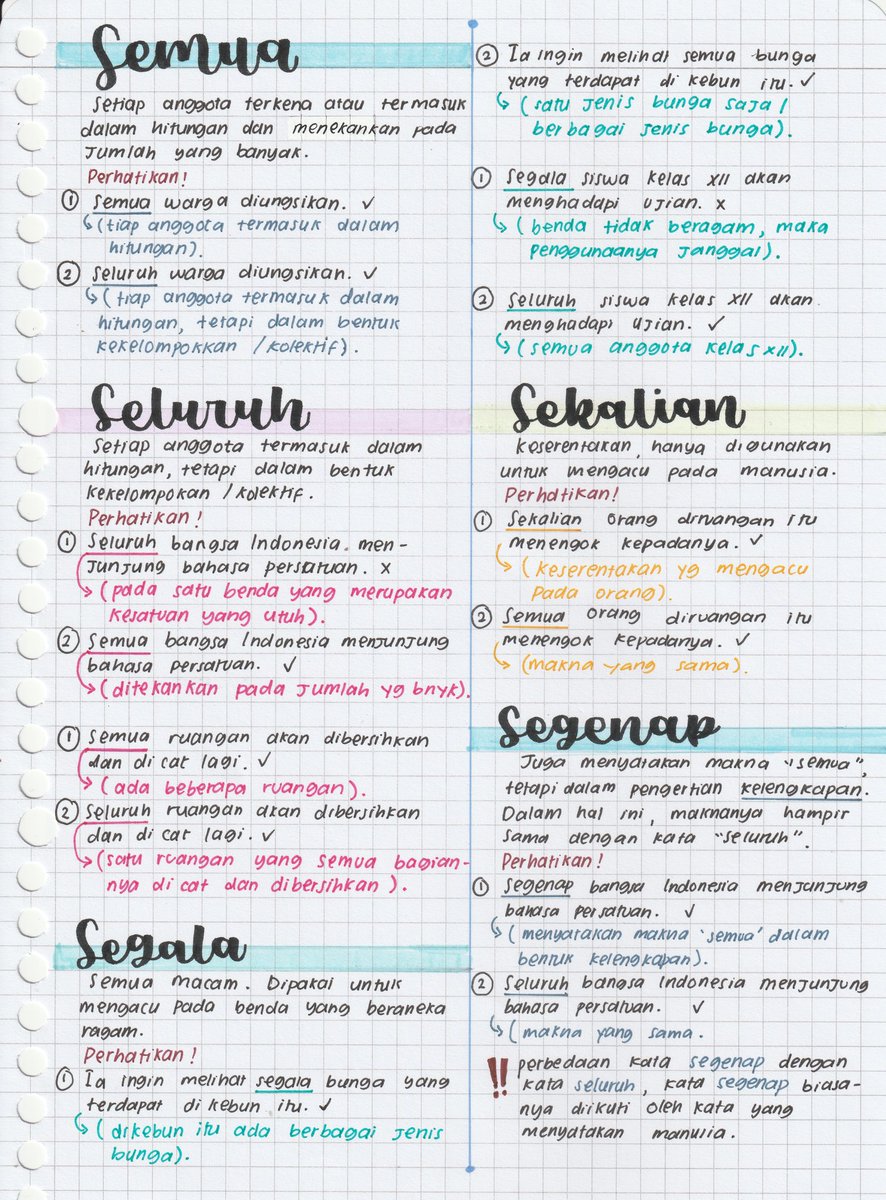 Semua
Setiap anggota terkena atau termasuk
dalam hitungan dan menekankan pada
jumlah yang banyak.
Perhatikan!
① Semua warga diungsikan. ✓
↳ (tiap anggota termasuk dalam
hitungan).
② Seluruh warga diungsikan. ✓
↳ (tiap anggota termasuk dalam
hitungan, tetapi dalam bentuk
kekelompokkan / kolektif).
Seluruh
Setiap anggota termasuk dalam
hitungan, tetapi dalam bentuk
kekelompokan / kolektif.
Perhatikan!
① Seluruh bangsa Indonesia men-
junjung bahasa persatuan. x
↳ (pada satu benda yang merupakan
kesatuan yang utuh).
② Semua bangsa Indonesia menjunjung
bahasa persatuan. ✓
↳ (ditekankan pada jumlah yg bnyk).
① Semua ruangan akan dibersihkan
dan di cat lagi. ✓
↳ (ada beberapa ruangan).
② Seluruh ruangan akan dibersihkan
dan di cat lagi. ✓
↳ (satu ruangan yang semua bagian-
nya di cat dan dibersihkan).
Segala
Semua macam. Dipakai untuk
mengacu pada benda yang beraneka
ragam.
Perhatikan!
① Ia ingin melihat segala bunga yang
terdapat di kebun itu. ✓
↳ (dikebun itu ada berbagai jenis
bunga).
② Ia ingin melihat semua bunga
yang terdapat di kebun itu. ✓
↳ (satu jenis bunga saja /
berbagai jenis bunga).
① Segala siswa kelas XII akan
menghadapi ujian. x
↳ (benda tidak beragam, maka
penggunaanya janggal).
② Seluruh siswa kelas XII akan
menghadapi ujian. ✓
↳ (semua anggota kelas XII).
Sekalian
Keserentakan, hanya digunakan
untuk mengacu pada manusia.
Perhatikan!
① Sekalian orang diruangan itu
menengok kepadanya. ✓
↳ (keserentakan yg mengacu
pada orang).
② Semua orang diruangan itu
menengok kepadanya. ✓
↳ (makna yang sama).
Segenap
Juga menyatakan makna "semua",
tetapi dalam pengertian kelengkapan.
Dalam hal ini, maknanya hampir
sama dengan kata "seluruh".
Perhatikan!
① Segenap bangsa Indonesia menjunjung
bahasa persatuan. ✓
↳ (menyatakan makna 'semua' dalam
bentuk kelengkapan).
② Seluruh bangsa Indonesia menjunjung
bahasa persatuan. ✓
↳ (makna yang sama.
!! perbedaan kata segenap dengan
kata seluruh, kata segenap biasa-
nya diikuti oleh kata yang
menyatakan manusia.